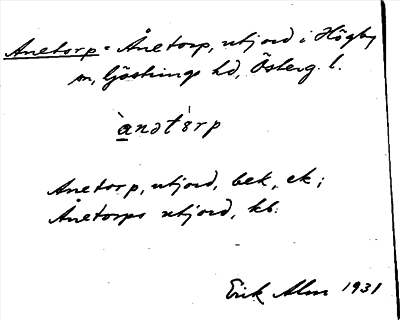 Anetorp = Ånetorp, utjord i Högby
sn, Göstrings hd, Österg. l.
ànət'ɵrp
Anetorp, utjord, bek, ek;
Ånetorps utjord, kb.
Erik Alm 1931